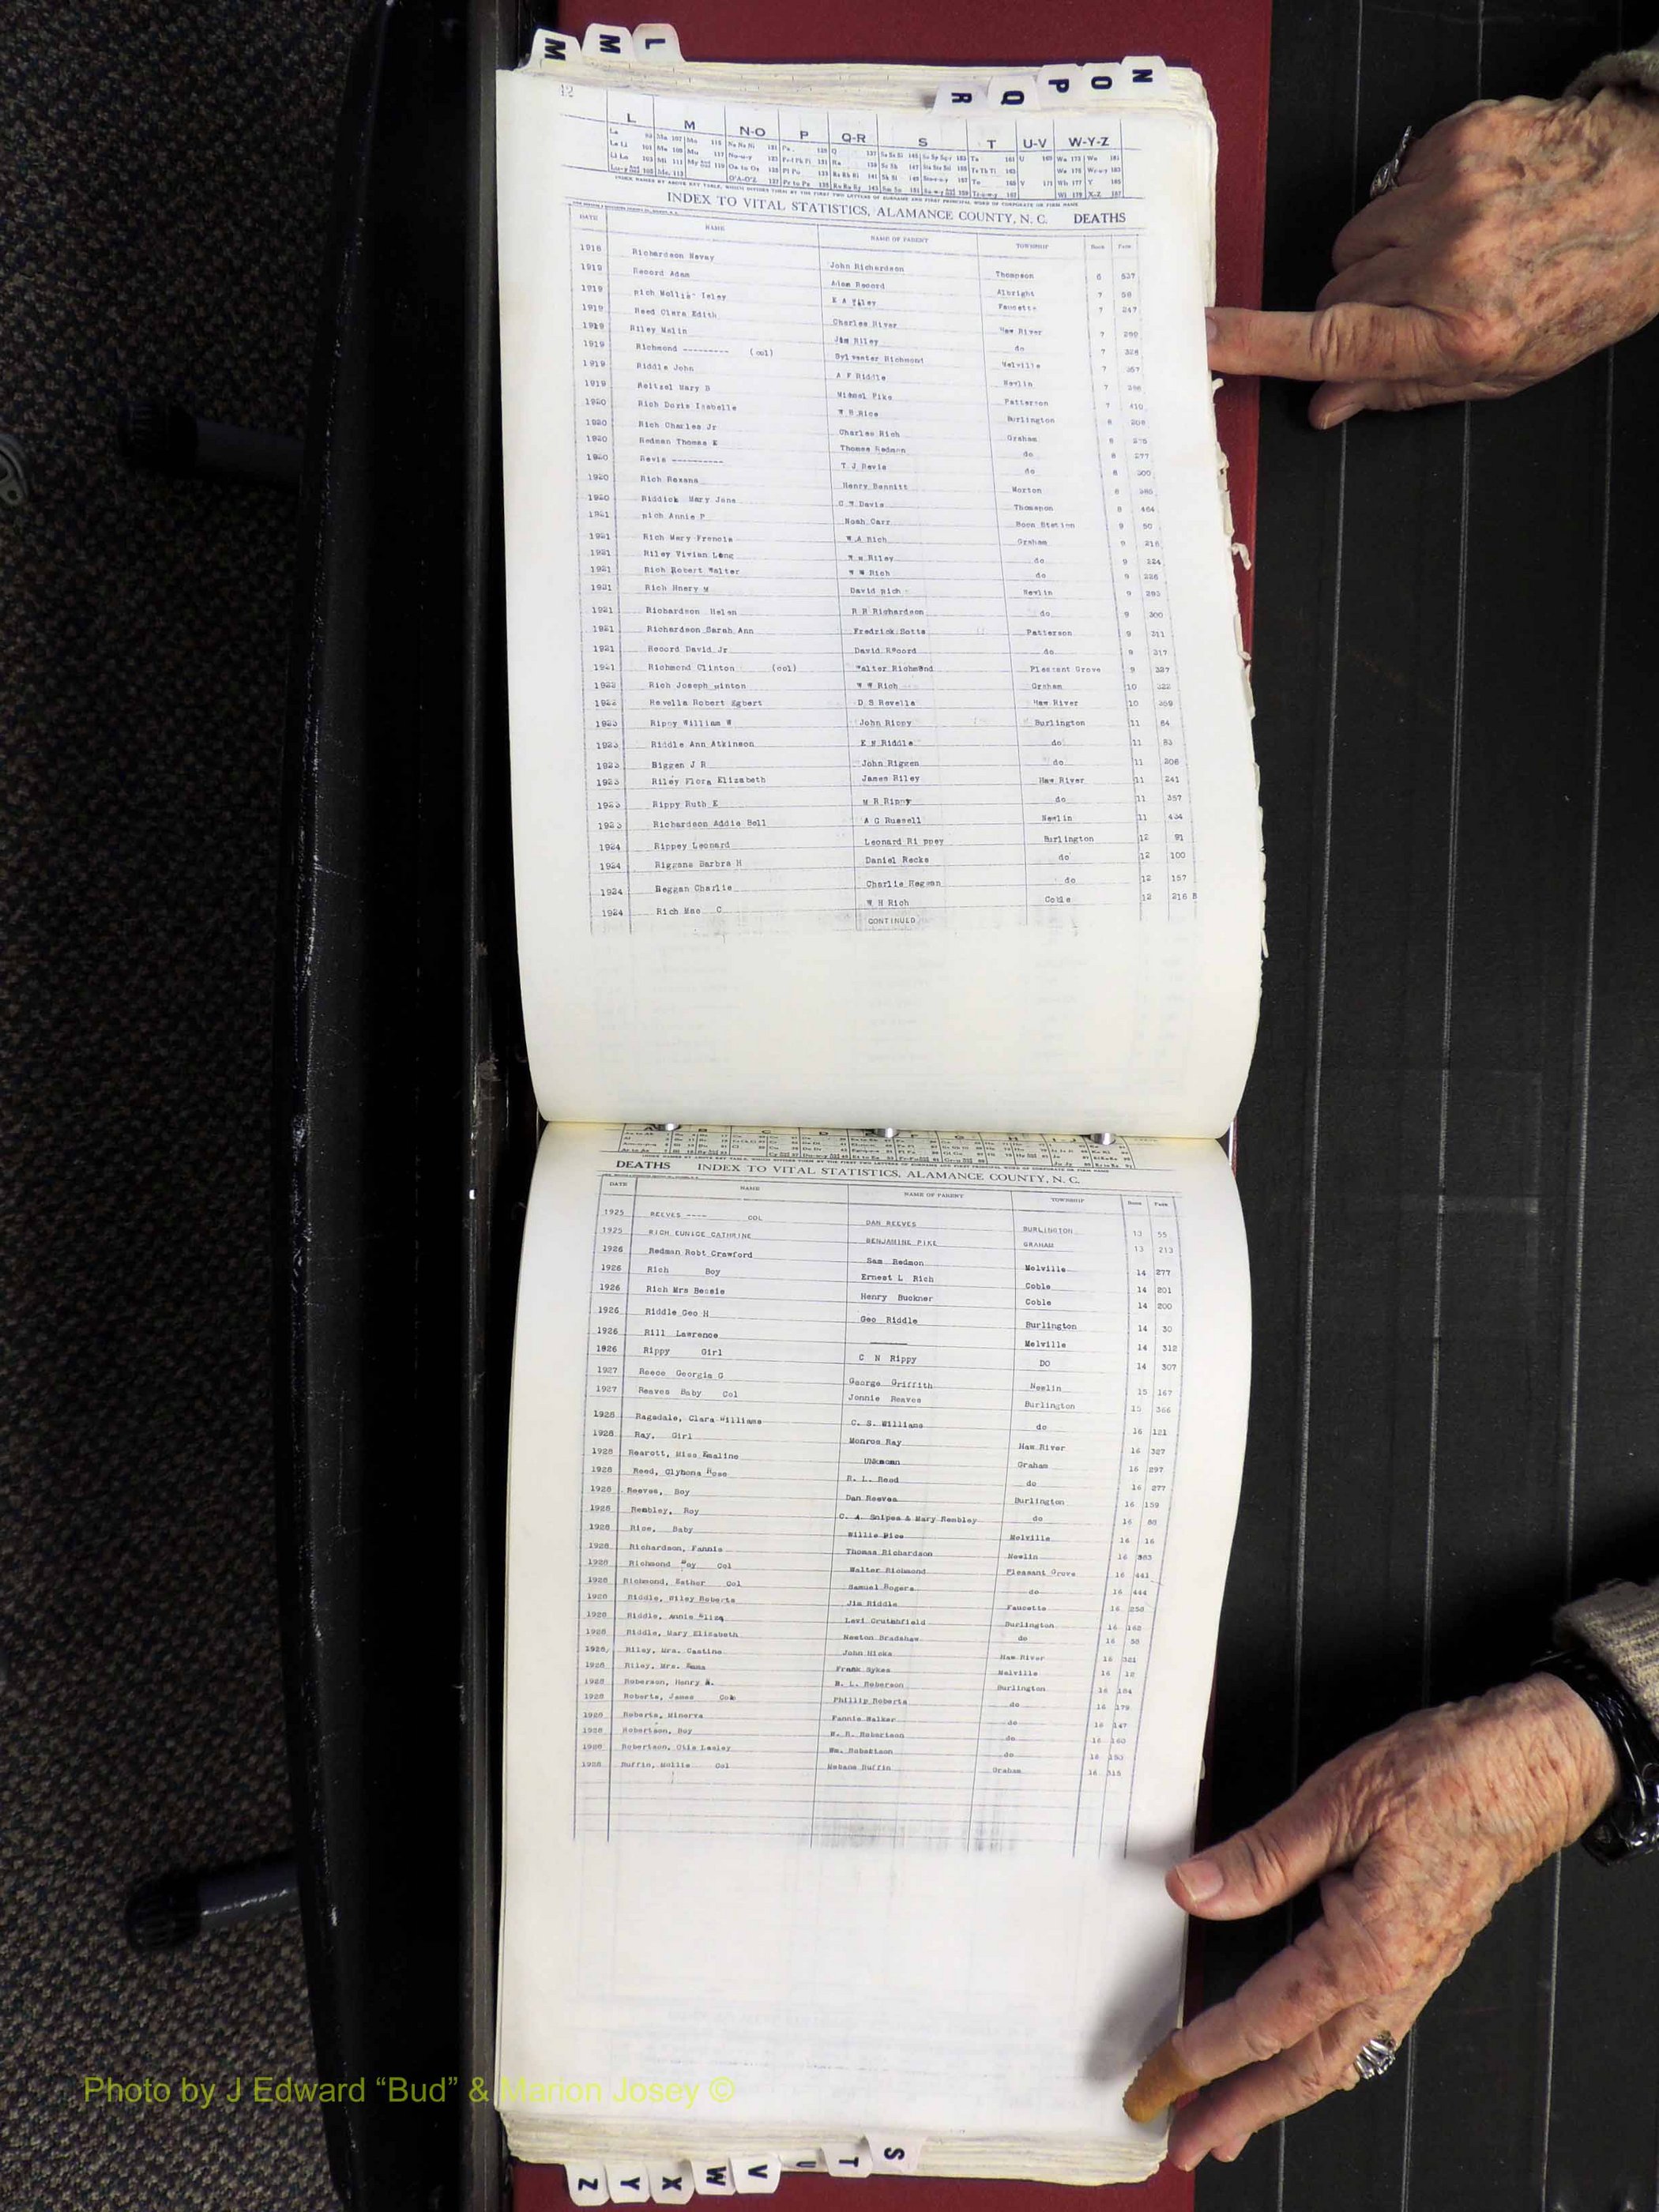 M M L
N O P Q R
12
L M N-O P Q-R S T U-V W-Y-Z
INDEX TO VITAL STATISTICS, ALAMANCE COUNTY, N. C. DEATHS
DATE NAME NAME OF PARENT TOWNSHIP Book Page
1916 Richardson Nevay John Richardson Thompson 6 537
1919 Record Adam Adam Record Albright 7 58
1919 Rich Mollie Isley Faucette 7 247
1919 Reed Clara Edith Charles River Haw River 7
1919 Riley Malin Jim Riley do 7 328
1919 Richmond --------- (col) Sylvester Richmond Melville 7 357
1919 Riddle John A F Riddle Newlin 7
1919 Reitzel Mary B Michael Pike Patterson 7 410
1920 Rich Doris Isabelle W H Rice Burlington 8 208
1920 Rich Charles Jr Charles Rich Graham 8 275
1920 Redman Thomas E Thomas Redman do 8 277
1920 Revis ---------- T J Revis do 8 300
1920 Rich Roxana Henry Bennitt Morton 8 385
1920 Riddick Mary Jane C T Davis Thompson 8 464
1921 Rich Annie P Noah Carr Boon Station 9 50
1921 Rich Mary Francis W A Rich Graham 9 218
1921 Riley Vivian Long Riley do 9 224
1921 Rich Robert Walter W W Rich do 9 226
1921 Rich Hnery M David Rich Newlin 9 293
1921 Richardson Helen R R Richardson do 9 300
1921 Richardson Sarah Ann Fredrick Sotts Patterson 9 311
1921 Record David Jr David Record do 9 317
1921 Richmond Clinton (col) Walter Richmond Pleasant Grove 9 327
1922 Rich Joseph Winton W W Rich Graham 10 322
1922 Revella Robert Egbert D S Revella Haw River 10 369
1923 Rippy William W John Rippy Burlington 11 64
1923 Riddle Ann Atkinson E N Riddle do 11 83
1923 Biggen J R John Riggen do 11 206
1923 Riley Flora Elizabeth James Riley Haw River 11 241
1923 Rippy Ruth E M R Rippy do 11 357
1923 Richardson Addie Bell A G Russell Newlin 11 434
1924 Rippey Leonard Leonard Ri ppey Burlington 12 91
1924 Riggans Barbra H Daniel Recks do 12 100
1924 Reggan Charlie Charlie Regman do 12 157
1924 Rich Mae C W H Rich Coble 12 216 B
CONTINUED
DEATHS INDEX TO VITAL STATISTICS, ALAMANCE COUNTY, N. C.
DATE NAME NAME OF PARENT TOWNSHIP Book Page
1925 REEVES ---- COL DAN REEVES BURLINGTON 13 55
1925 RICH EUNICE CATHRINE BENJAMINE PIKE GRAHAM 13 213
1926 Redman Robt Crawford Sam Redmon Melville 14 277
1926 Rich Boy Ernest L Rich Coble 14 201
1926 Rich Mrs Bessie Henry Buckner Coble 14 200
1926 Riddle Geo H Geo Riddle Burlington 14 30
1926 Rill Lawrence ———— Melville 14 312
1926 Rippy Girl C N Rippy DO 14 307
1927 Reece Georgia G George Griffith Newlin 15 167
1927 Reaves Baby Col Jonnie Reaves Burlington 15 366
1928 Ragsdale, Clara Williams C. S. Williams do 16 121
1928 Ray, Girl Monroe Ray Haw River 16 327
1928 Rearott, Miss Emaline UNknown Graham 16 297
1928 Reed, Clyhona Rose R. L. Reed do 16 277
1928 Reeves, Boy Dan Reeves Burlington 16 159
1928 Rembley, Roy C. A. Snipes & Mary Rembley do 16 88
1928 Rice, Baby Willie Rice Melville 16 16
1928 Richardson, Fannie Thomas Richardson Newlin 16 383
1928 Richmond Boy Col Walter Richmond Pleasant Grove 16 441
1928 Richmond, Esther Col Samuel Rogers do 16 444
1928 Riddle, Riley Roberts Jim Riddle Faucette 16 258
1928 Riddle, Annie Eliza Levi Cruthfield Burlington 16 162
1928 Riddle, Mary Elizabeth Newton Bradshaw do 16 58
1928 Riley, Mrs. Castine John Hicks Haw River 16 321
1928 Riley, Mrs. Emma Frank Sykes Melville 16 12
1928 Roberson, Henry A. B. L. Roberson Burlington 16 184
1928 Roberts, James Col Phillip Roberts do 16 179
1928 Roberts, Minerva Fannie Walker do 16 147
1928 Robertson, Boy W. R. Robertson do 16 160
1928 Robertson, Otis Lasley Wm. Robertson do 16 153
1928 Ruffin, Mollie Col Mebane Ruffin Graham 16 315
Photo by J Edward “Bud” & Marion Josey ©
Z Y X W V U T S